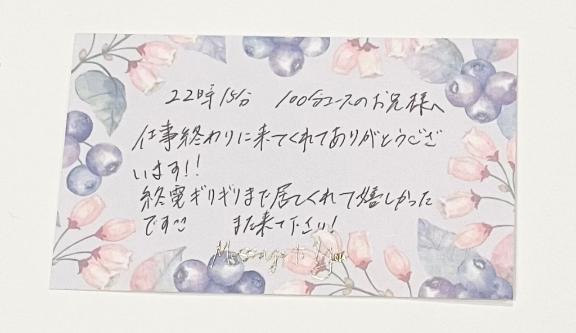 22時15分 100分コースのお兄様へ
仕事終わりに来てくれてありがとうござ
います!!
終電ギリギリまで居てくれて嬉しかった
です♡♡ また来て下さい!
Message to You